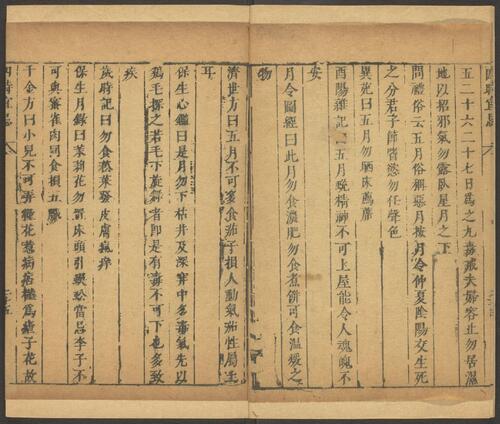 五二十六二十七日爲之九毒戒夫婦容止勿居濕
地以招邪氣勿露臥星月之下
問禮俗云五月俗稱惡月按月令仲夏陰陽交生死
之分君子節嗜慾勿任聲色
異苑曰五月勿晒床薦蓆
酉陽雜記曰五月蛻精神不可上屋能令人魂魄不
安
月令圖經曰此月勿食濃肥勿食煮餅可食温煖之
物
濟世方曰五月不可多食茄子損人動氣茄性屬土
耳
保生心鑑曰是月勿下枯井及深穽中多毒氣先以
鷄毛探之若毛下旋舞者即是有毒不可下也多致
疾
歲時記曰勿食韮菜發皮膚瘋痒
保生月錄曰茉莉花勿置床頭引蜈蚣當忌李子不
可與蜜雀肉同食損五臟
千金方曰小兒不可弄槿花惹病痁槿爲瘧子花故
四時宜忌